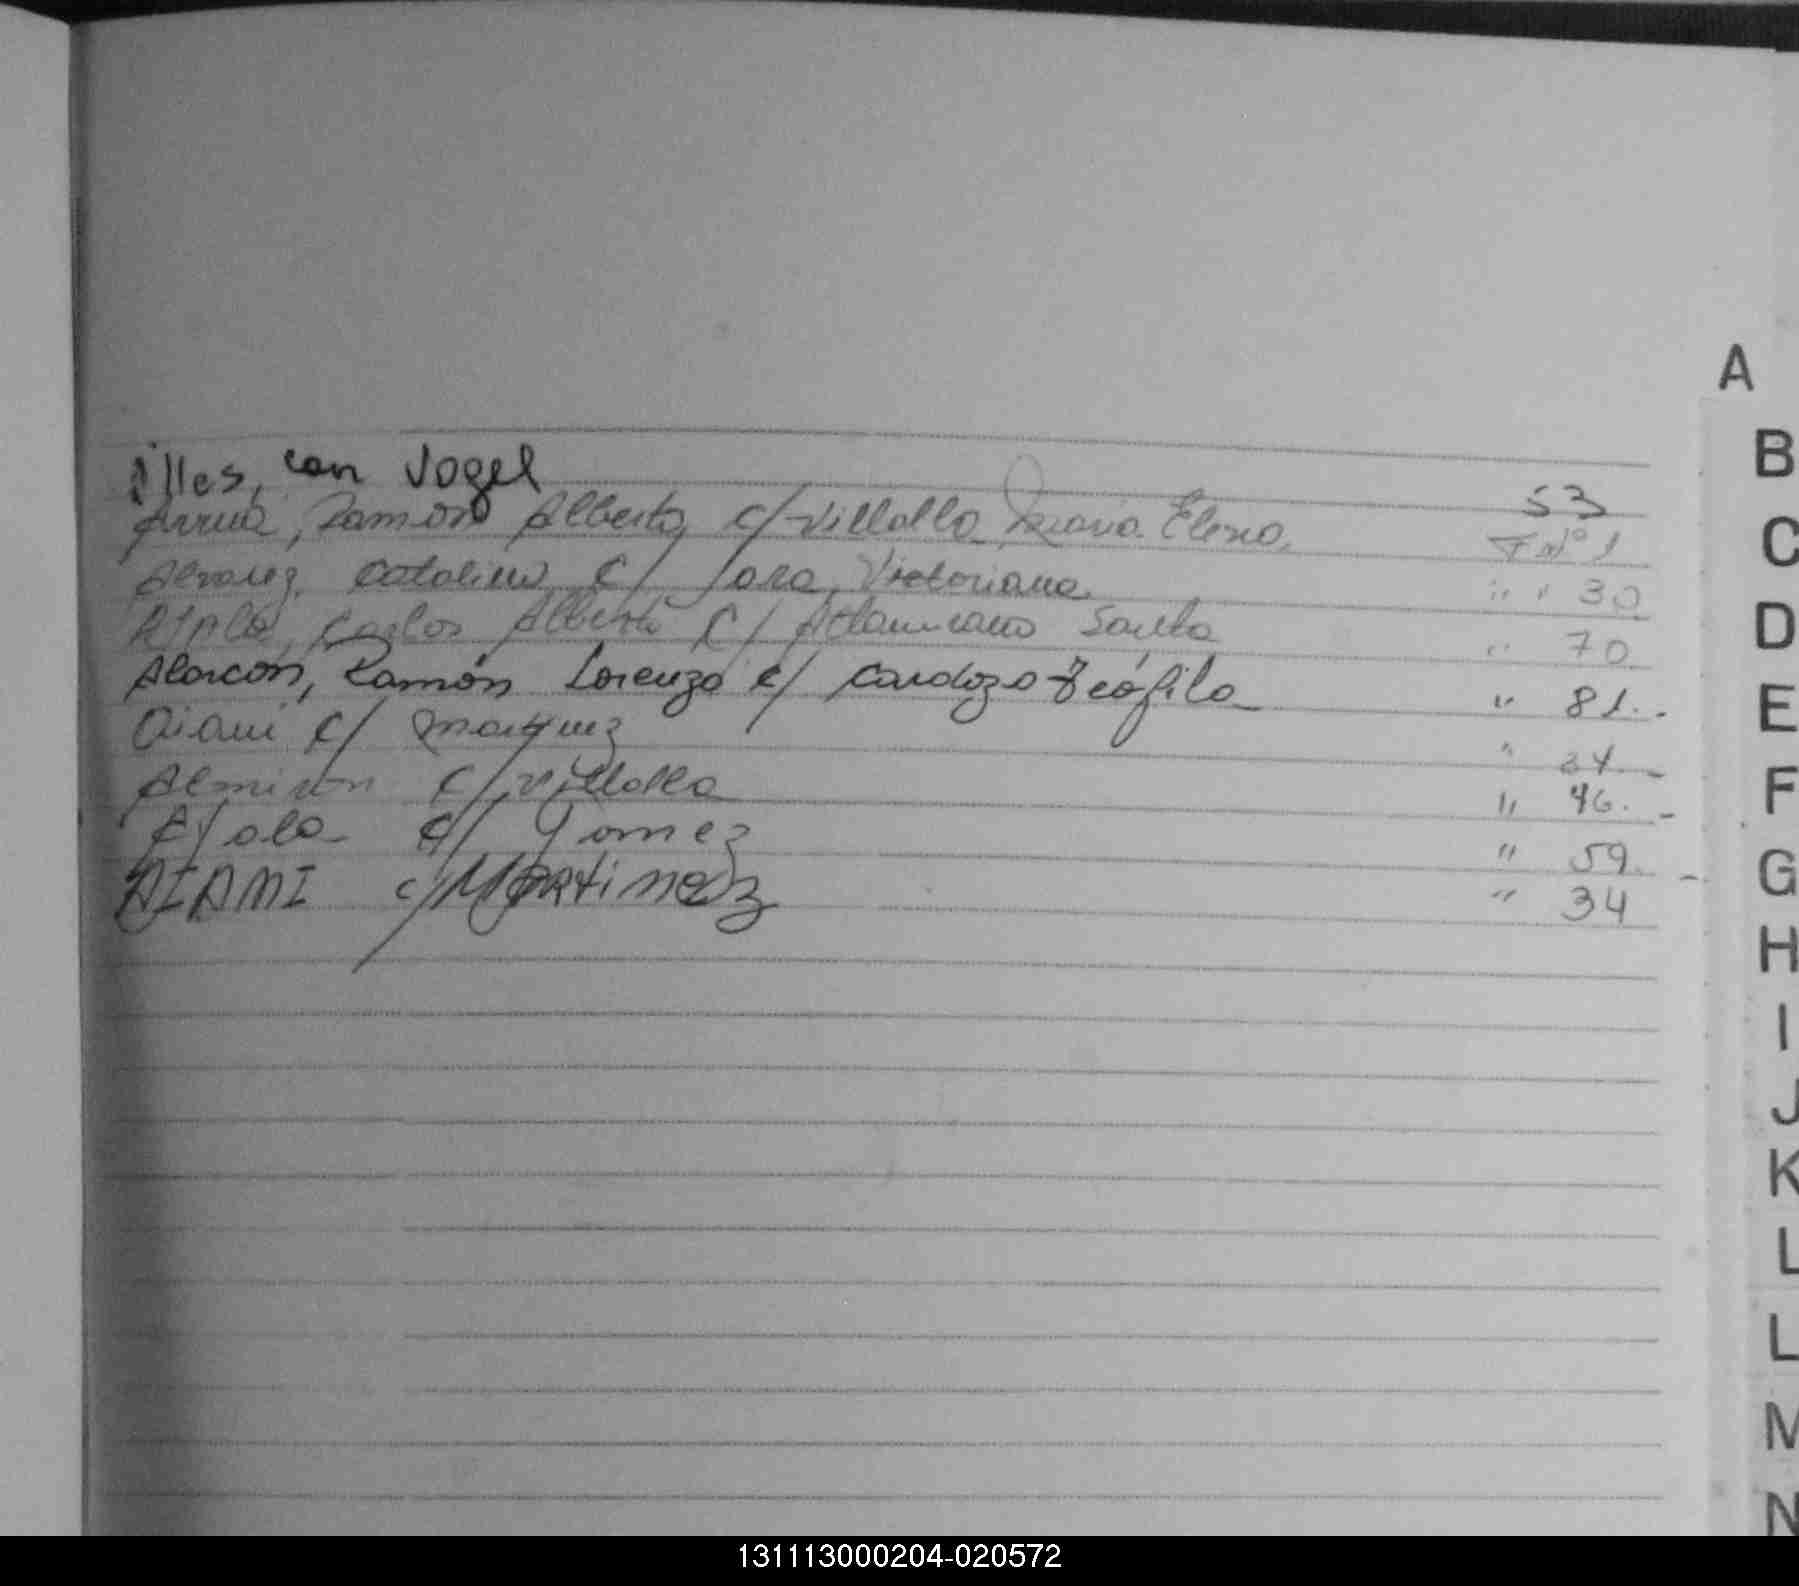 Illes, con Vogel 53
Arrua, Ramón Alberto c/ Villalba María Elena. F Nº 1
Alvarez, Catalino c/ Jara, Victoriana. " " 30
Ayala, Carlos Alberto c/ Altamirano Santa " 70
Alarcón, Ramón Lorenzo c/ Cardozo Teófila " 81.-
Aiani c/ Martinez " 34.-
Almiron c/ Villalba " 46.-
Ayala c/ Gomez " 59.-
AIANI c/ Martinez " 34
A
B
C
D
E
F
G
H
I
J
K
L
L
M
N
131113000204-020572